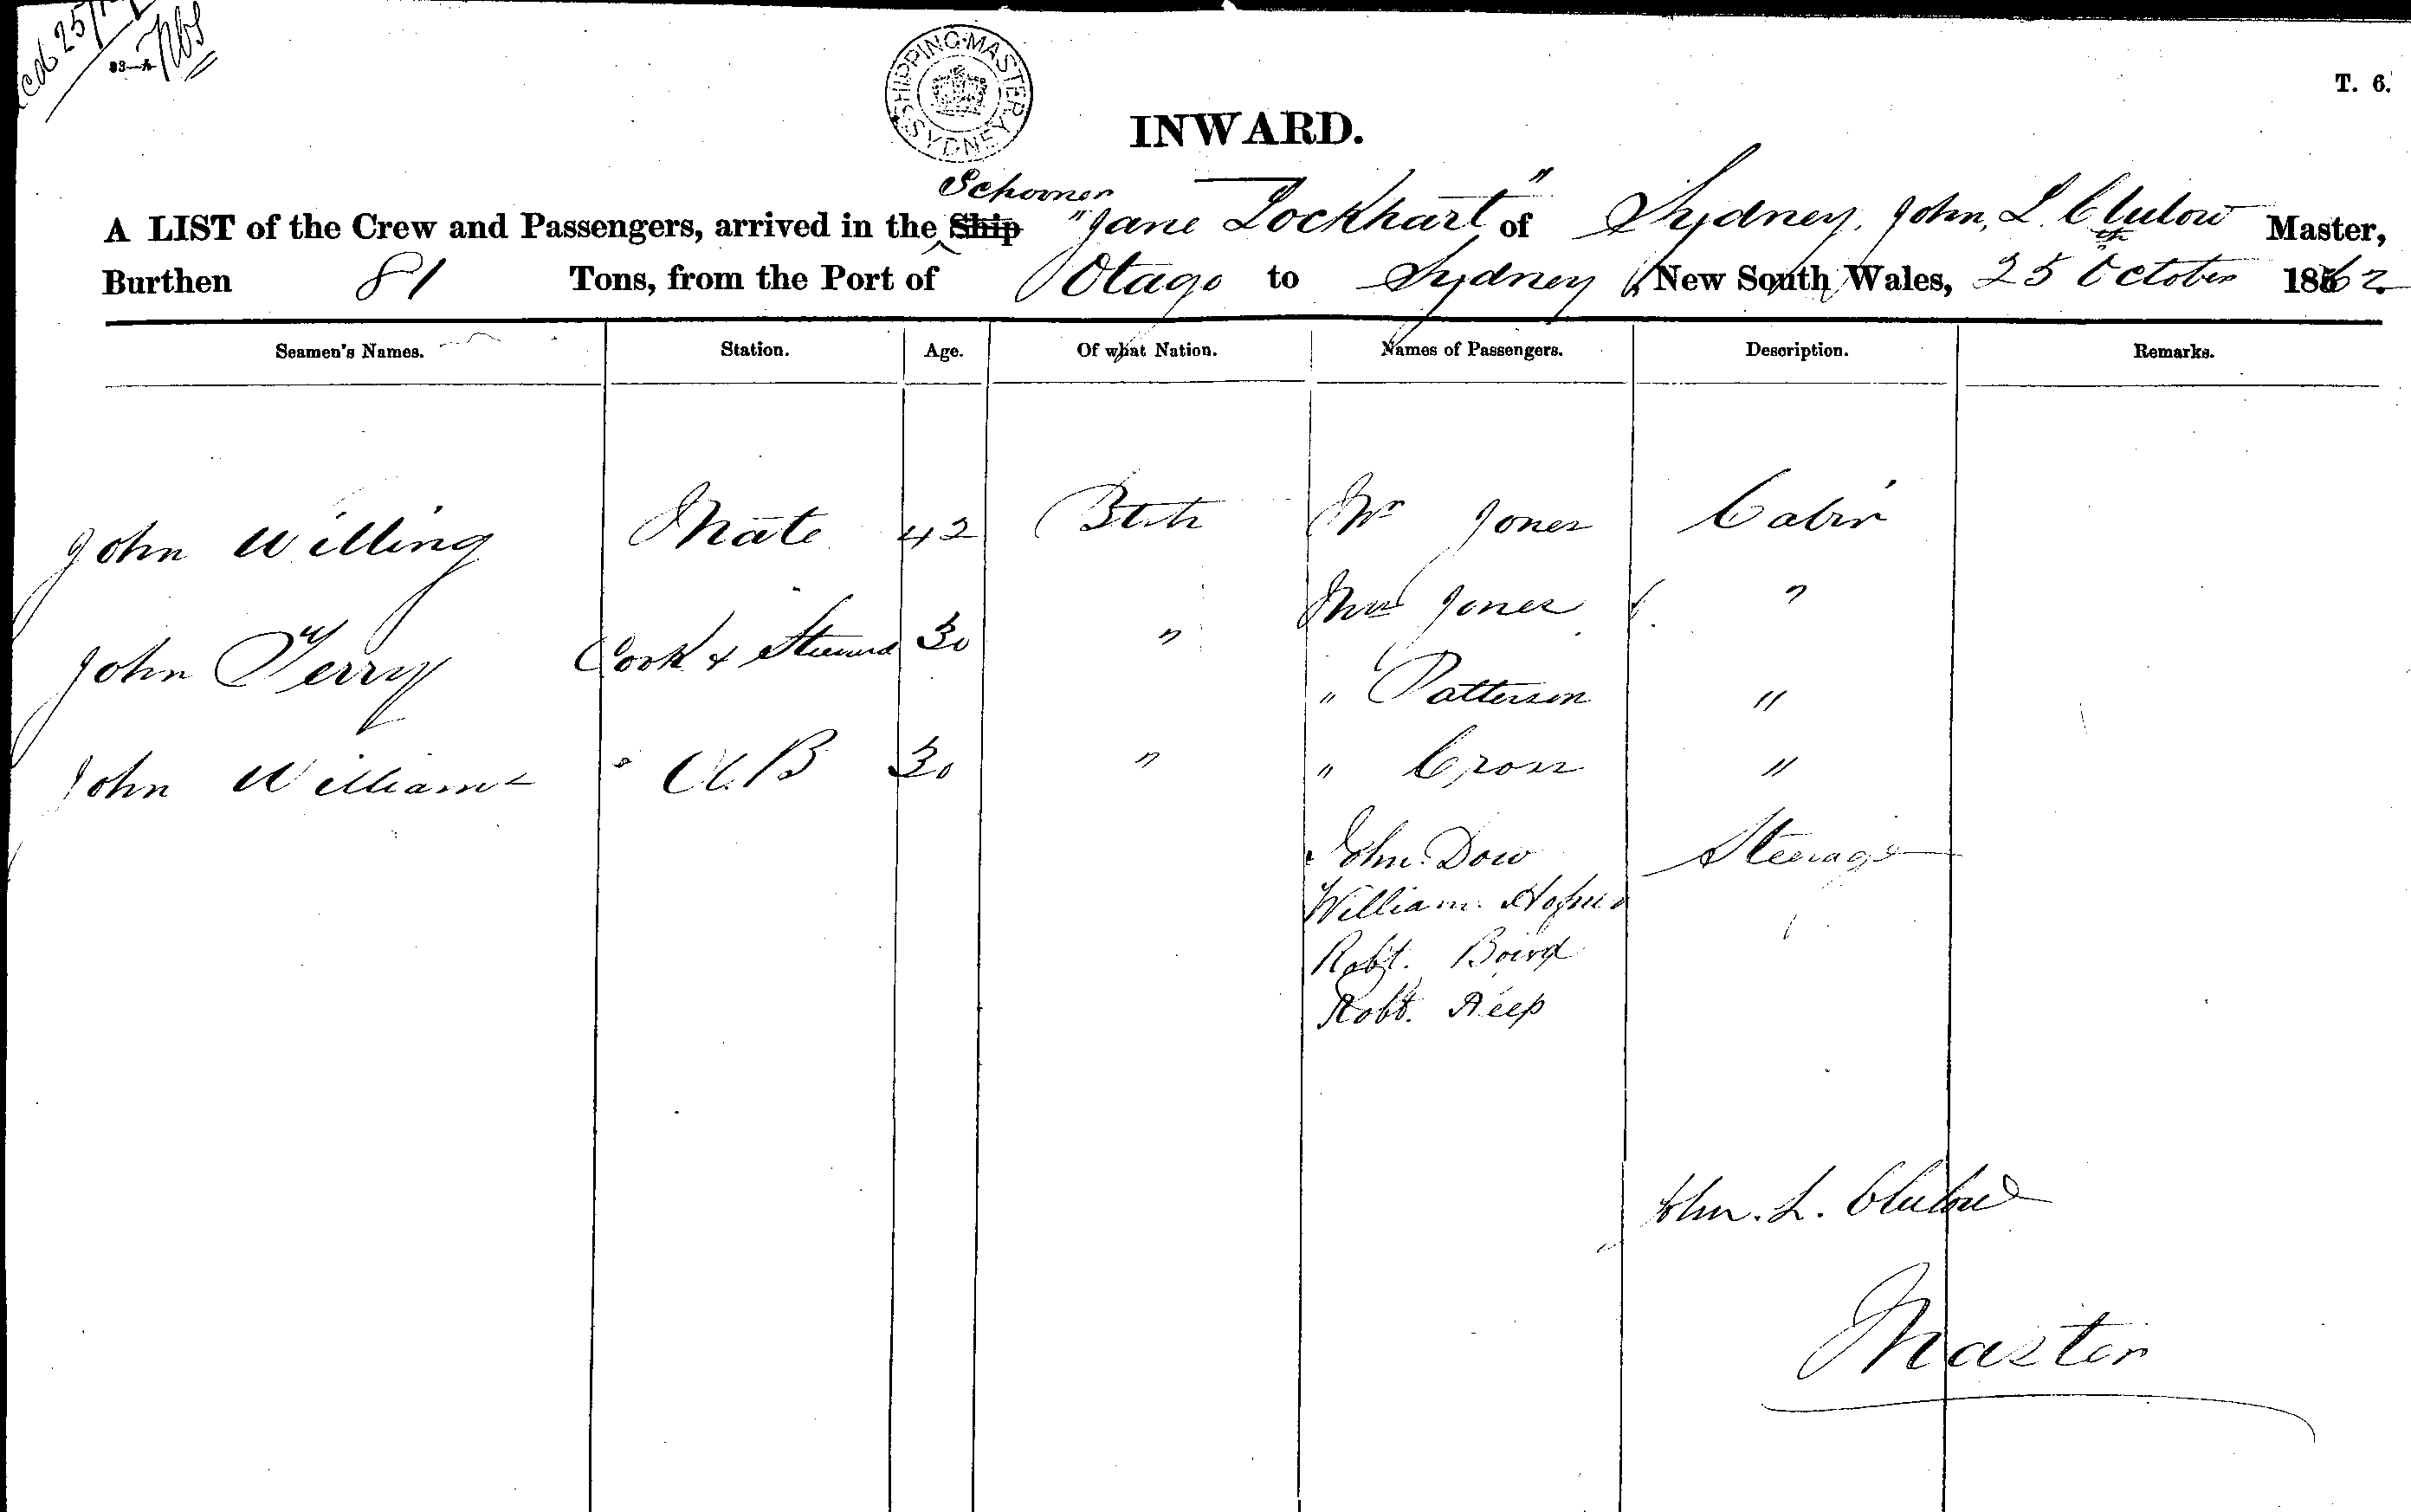 93—A
T. 6.
SHIPPING MASTER SYDNEY
INWARD.
Schooner
A LIST of the Crew and Passengers, arrived in the Ship "Jane Lockhart" of Sydney, John, L. Clulow Master,
Burthen 81 Tons, from the Port of Otago to Sydney New South Wales, 25th October 1862
Seamen's Names. Station. Age. Of what Nation. Names of Passengers. Description. Remarks.
John Willing Mate 42 Btsh Mr Jones Cabin
Mrs Jones "
John Terry Cook & Steward 30 "
" Patterson "
John Williams A.B 30 " " Cross "
John Dow Steerage
William
Robt. Baird
Robt. Reep
John. L. Clulow
Master